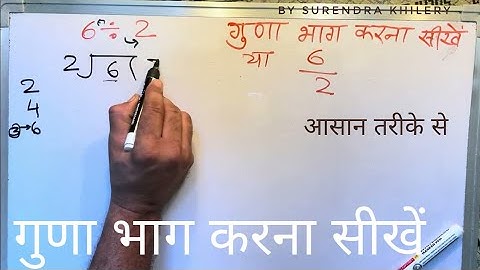 BY SURENDRA KHILERY
6 ÷ 2
गुणा भाग करना सीखें
या 6/2
2√6(
2
4
3→6
आसान तरीके से
गुणा भाग करना सीखें